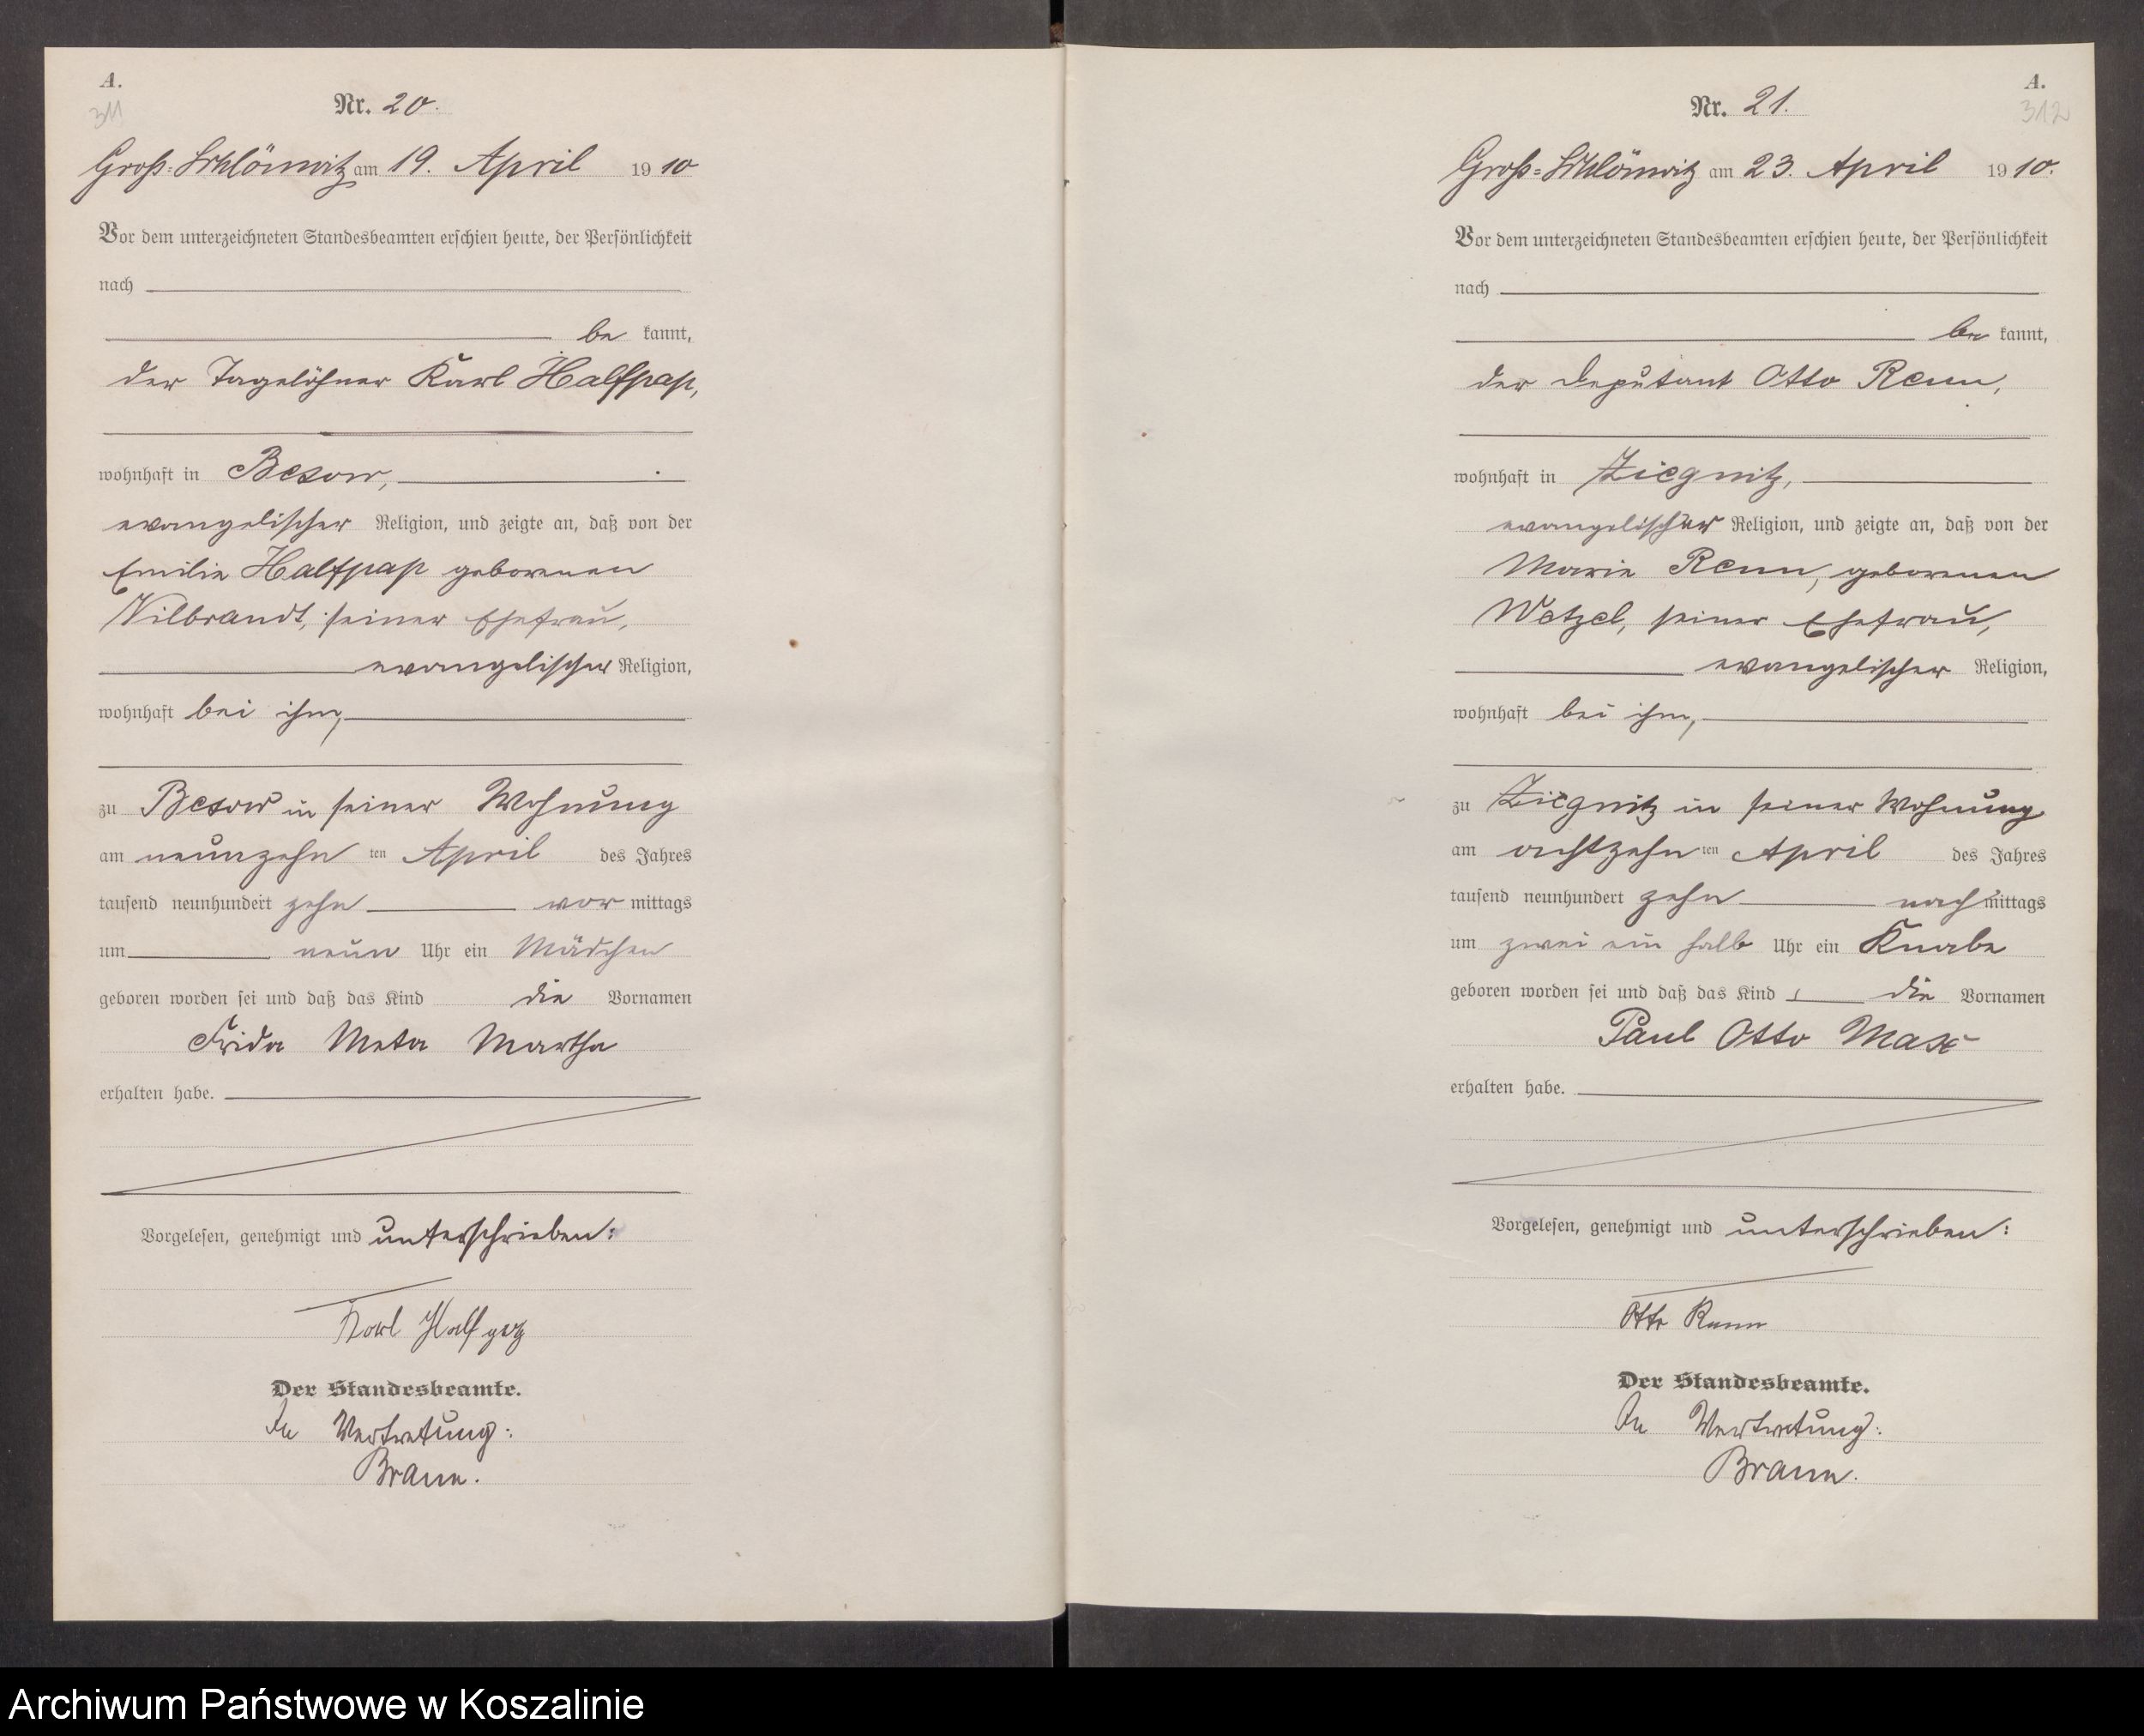 A.
311
Nr. 20.
Groß-Schlönwitz am 19. April 1910
Vor dem unterzeichneten Standesbeamten erschien heute, der Persönlichkeit
nach
be kannt,
der Tagelöhner Karl Halfpap,
wohnhaft in Besow,
evangelischer Religion, und zeigte an, daß von der
Emilie Halfpap geborenen
Vilbrandt, seiner Ehefrau,
evangelischer Religion,
wohnhaft bei ihm,
zu Besow in seiner Wohnung
am neunzehn ten April des Jahres
tausend neunhundert zehn vor mittags
um neun Uhr ein Mädchen
geboren worden sei und daß das Kind die Vornamen
Frida Meta Martha
erhalten habe.
Vorgelesen, genehmigt und unterschrieben:
Karl Halfpap
Der Standesbeamte.
In Vertretung:
Braun.
A.
312
Nr. 21.
Groß-Schlönwitz am 23. April 1910.
Vor dem unterzeichneten Standesbeamten erschien heute, der Persönlichkeit
nach
be kannt,
der Deputant Otto Renn,
wohnhaft in Ziegnitz,
evangelischer Religion, und zeigte an, daß von der
Marie Renn, geborenen
Wetzel, seiner Ehefrau,
evangelischer Religion,
wohnhaft bei ihm,
zu Ziegnitz in seiner Wohnung
am achtzehn ten April des Jahres
tausend neunhundert zehn nach mittags
um zwei ein halb Uhr ein Knabe
geboren worden sei und daß das Kind die Vornamen
Paul Otto Max
erhalten habe.
Vorgelesen, genehmigt und unterschrieben:
Otto Renn
Der Standesbeamte.
In Vertretung:
Braun.
Archiwum Państwowe w Koszalinie